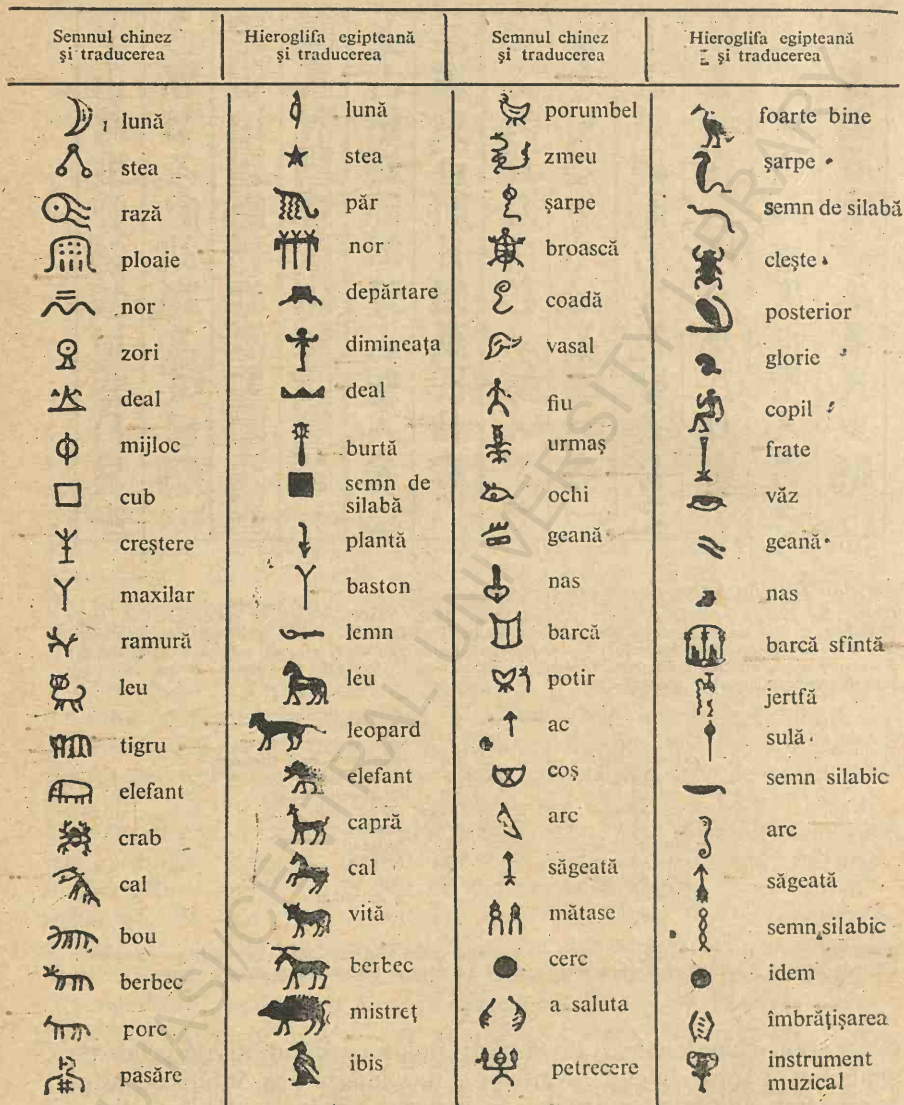 Semnul chinez
și traducerea
Hieroglifa egipteană
și traducerea
Semnul chinez
și traducerea
Hieroglifa egipteană
și traducerea
lună
lună
porumbel
foarte bine
stea
stea
zmeu
șarpe
rază
păr
șarpe
semn de silabă
ploaie
nor
broască
clește
nor
depărtare
coadă
posterior
zori
dimineața
vasal
glorie
deal
deal
fiu
copil
mijloc
burtă
urmaș
frate
cub
semn de
silabă
ochi
văz
creștere
plantă
geană
geană
maxilar
baston
nas
nas
ramură
lemn
barcă
barcă sfîntă
leu
leu
potir
jertfă
tigru
leopard
ac
sulă
elefant
elefant
coș
semn silabic
crab
capră
arc
arc
cal
cal
săgeată
săgeată
bou
vită
mătase
semn silabic
berbec
berbec
cerc
idem
porc
mistreț
a saluta
îmbrățișarea
pasăre
ibis
petrecere
instrument
muzical
CENTRAL UNIVERSITY LIBRARY